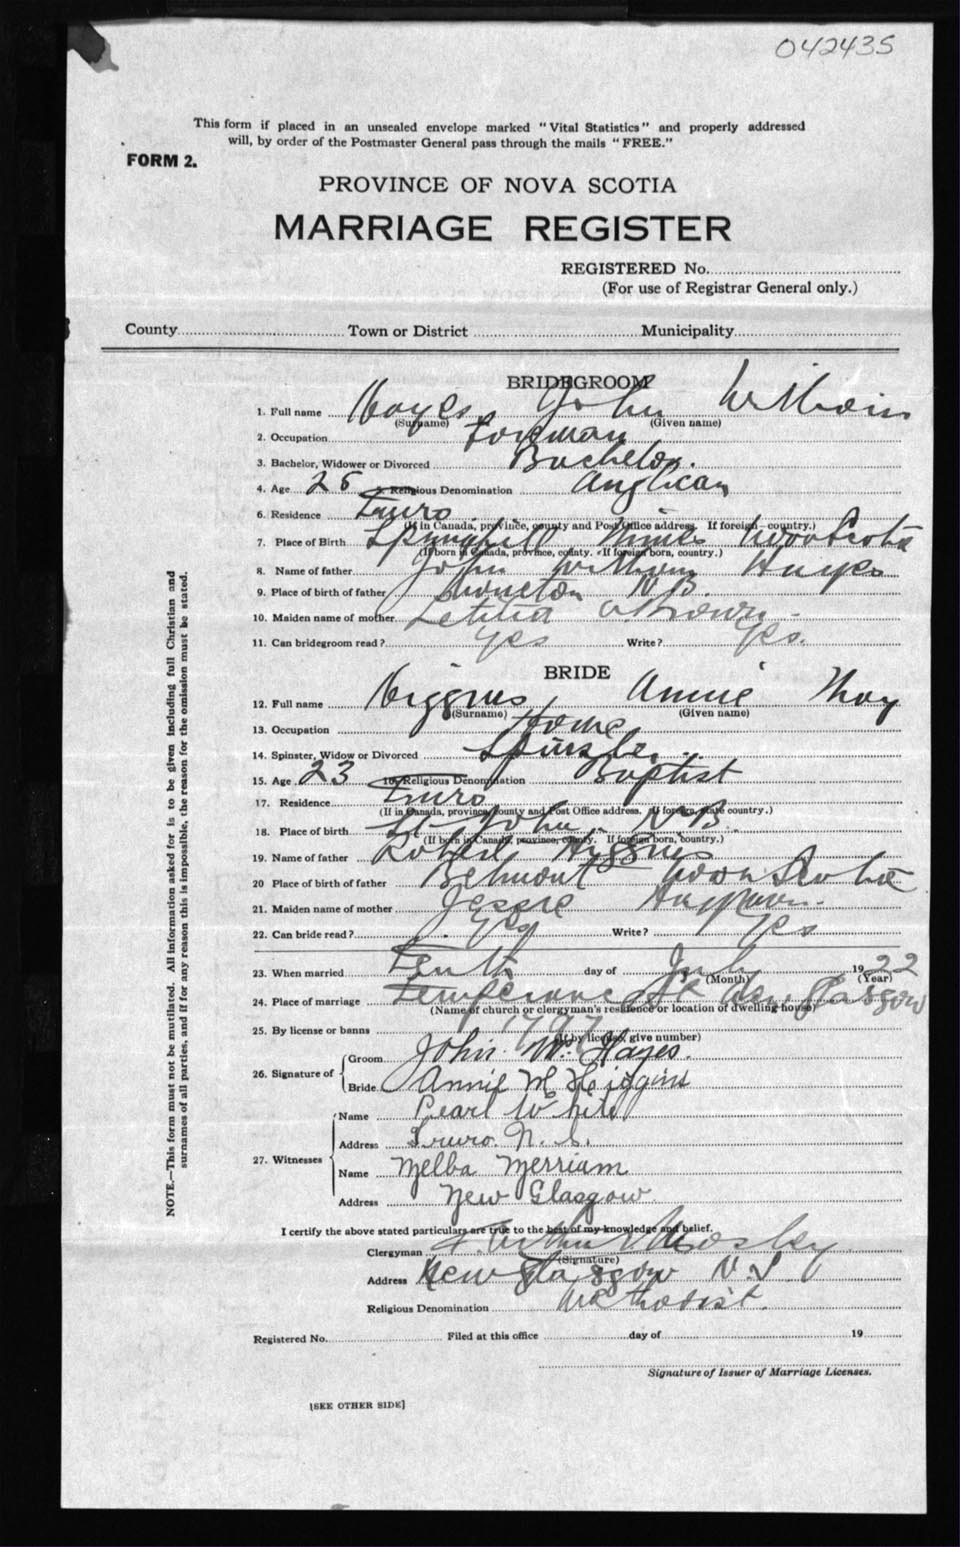 042435
This form if placed in an unsealed envelope marked "Vital Statistics" and properly addressed
will, by order of the Postmaster General pass through the mails "FREE."
FORM 2.
PROVINCE OF NOVA SCOTIA
MARRIAGE REGISTER
REGISTERED No.
(For use of Registrar General only.)
County Town or District Municipality
BRIDEGROOM
1. Full name Hayes John William
(Surname) (Given name)
2. Occupation Foreman
3. Bachelor, Widower or Divorced Bachelor.
4. Age 5. Religious Denomination Anglican
6. Residence Truro
(If in Canada, province, county and Post Office address. If foreign—country.)
7. Place of Birth Springhill Mines Nova Scotia
(If born in Canada, province, county. If foreign born, country.)
8. Name of father John William Hayes
9. Place of birth of father Moncton N.B.
10. Maiden name of mother Letitia Brown
11. Can bridegroom read? Yes Write? Yes.
BRIDE
12. Full name Higgins Annie May
(Surname) (Given name)
13. Occupation Home
14. Spinster, Widow or Divorced Spinster
15. Age 23 16. Religious Denomination Baptist
17. Residence Truro
(If in Canada, province, county and Post Office address. If foreign, state country.)
18. Place of birth St John N.B.
(If born in Canada, province, county. If foreign born, country.)
19. Name of father Robert Higgins
20 Place of birth of father Belmont Nova Scotia
21. Maiden name of mother Jessie
22. Can bride read? Yes Write? Yes
23. When married Tenth day of July 1922
(Month) (Year)
24. Place of marriage Temperance St New Glasgow
(Name of church or clergyman's residence or location of dwelling house)
25. By license or banns
(If by license, give number)
26. Signature of Groom John W. Hayes.
Bride Annie M Higgins
27. Witnesses Name Pearl White
Address Truro N.S.
Name Melba Merriam
Address New Glasgow
I certify the above stated particulars are true to the best of my knowledge and belief.
Clergyman
(Signature)
Address New Glasgow N.S
Religious Denomination Methodist.
Registered No. Filed at this office day of 19
Signature of Issuer of Marriage Licenses.
[SEE OTHER SIDE]
NOTE.—This form must not be mutilated. All information asked for is to be given including full Christian and
surnames of all parties, and if for any reason this is impossible, the reason for the omission must be stated.